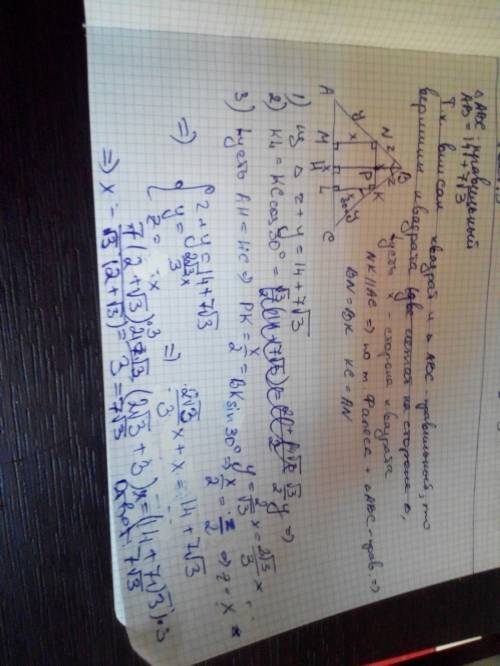 △ABC - правильный
AB = 14 + 7√3
Т.к вписан квадрат и △ABC - правильный, то
вершины квадрата (две лежат на стороне),
пусть x - сторона квадрата
NK || AC ⇒ по т. Фалеса + △ABC - прав. ⇒
BN = BK KC = AN
B
z
z
N
P
K
y
x
30°
y
A
M
H
x
L
C
1) из △ z + y = 14 + 7√3
2) KL = KC cos 30° = √3/2 y ⇒
y = 2/√3 x = 2√3/3 x
3) Пусть AH = HC ⇒ PK = x/2 = BK sin 30° ⇒ x/2 = z/2 ⇒ z = x
⇒ { z + y = 14 + 7√3
y = 2√3x/3
z = x
⇒ 2√3/3 x + x = 14 + 7√3
(2√3 + 3)x = (14 + 7√3)·3
⇒ x = 7(2 + √3)·3 / √3(2 + √3) = 7√3
Ответ: 7√3